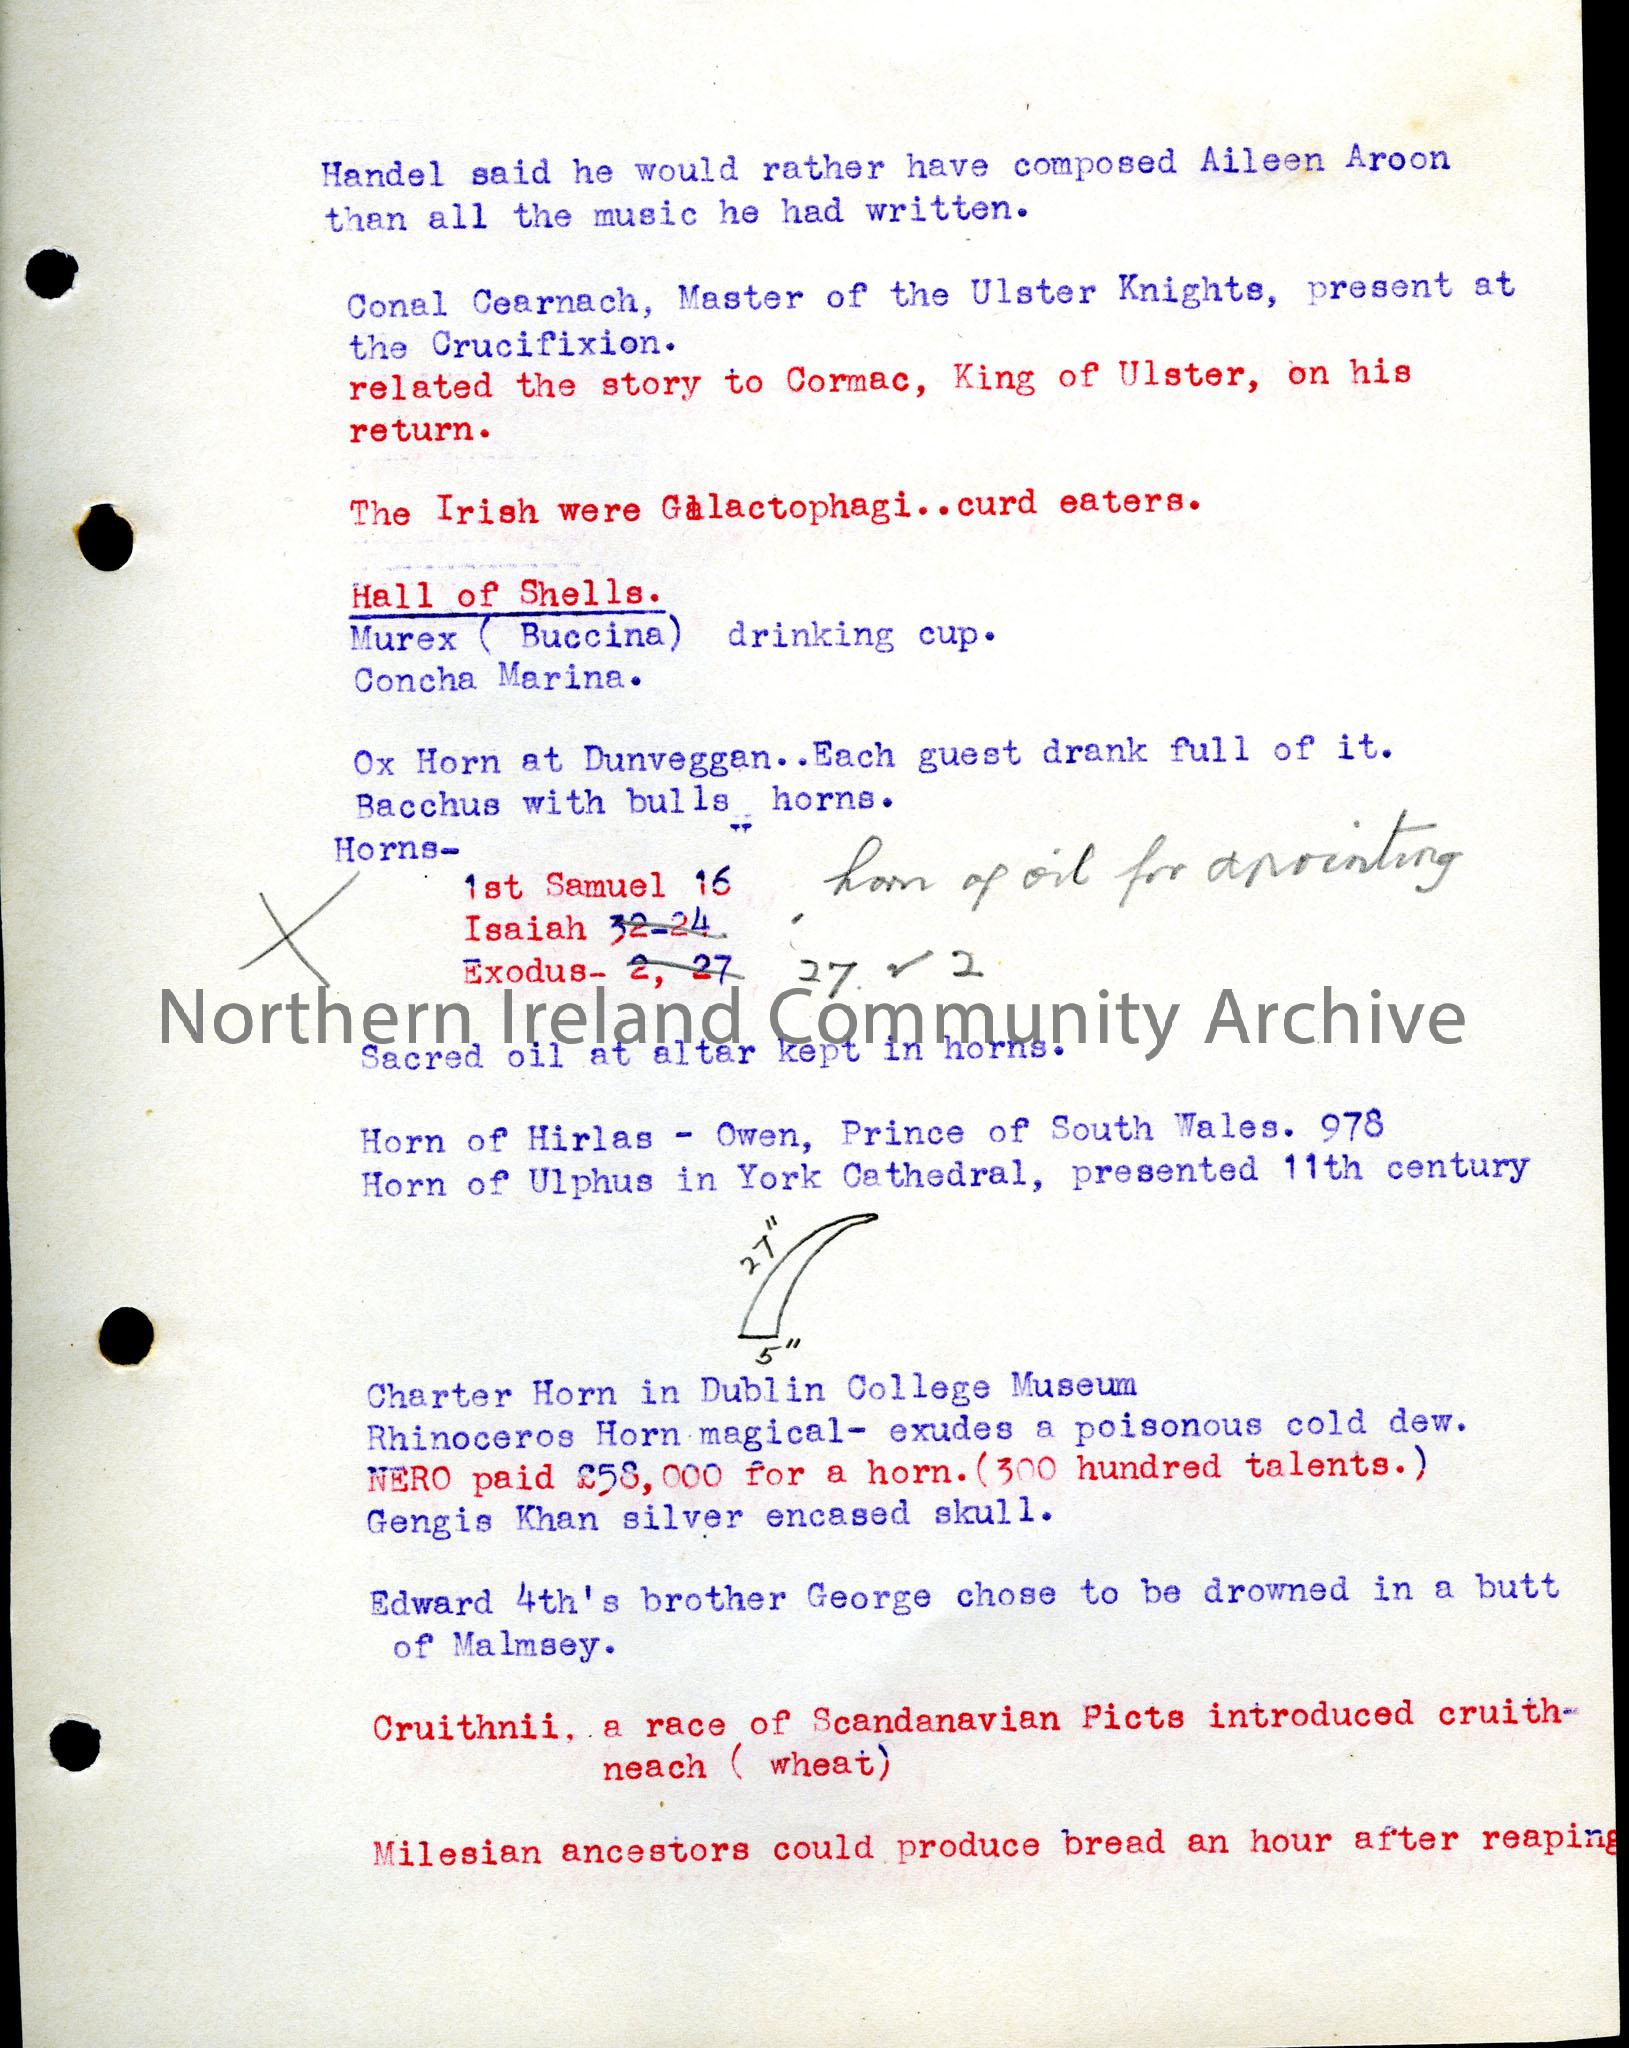 Handel said he would rather have composed Aileen Aroon
than all the music he had written.
Conal Cearnach, Master of the Ulster Knights, present at
the Crucifixion.
related the story to Cormac, King of Ulster, on his
return.
The Irish were Galactophagi..curd eaters.
Hall of Shells.
Murex ( Buccina) drinking cup.
Concha Marina.
Ox Horn at Dunveggan..Each guest drank full of it.
Bacchus with bulls horns.
Horns-
1st Samuel 16 horn of oil for anointing
Isaiah 32-24
Exodus- 2, 27 27. v 2
Northern Ireland Community Archive
Sacred oil at altar kept in horns.
Horn of Hirlas - Owen, Prince of South Wales. 978
Horn of Ulphus in York Cathedral, presented 11th century
27"
5"
Charter Horn in Dublin College Museum
Rhinoceros Horn magical- exudes a poisonous cold dew.
NERO paid £58,000 for a horn.(300 hundred talents.)
Gengis Khan silver encased skull.
Edward 4th's brother George chose to be drowned in a butt
of Malmsey.
Cruithnii, a race of Scandanavian Picts introduced cruith-
neach ( wheat)
Milesian ancestors could produce bread an hour after reaping